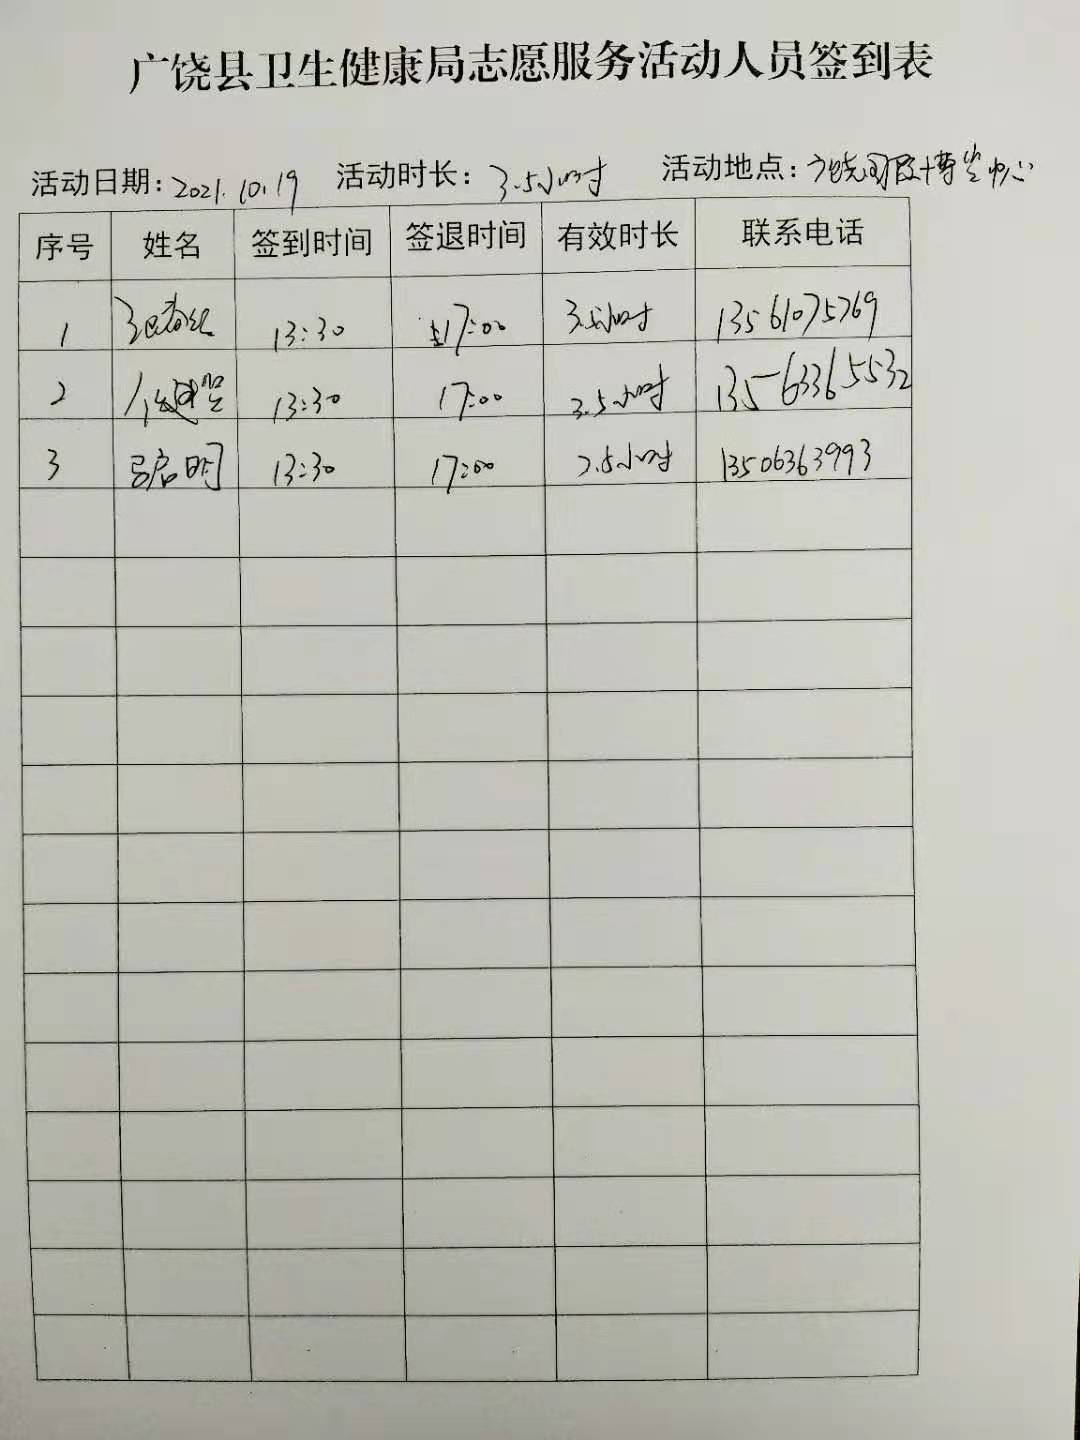 广饶县卫生健康局志愿服务活动人员签到表
活动日期：2021.10.19 活动时长：3.5小时 活动地点：广饶国际博览中心
序号 姓名 签到时间 签退时间 有效时长 联系电话
1 13:30 17:00 3.5小时 13561075769
2 13:30 17:00 3.5小时 13563365532
3 启明 13:30 17:00 3.5小时 13506363993